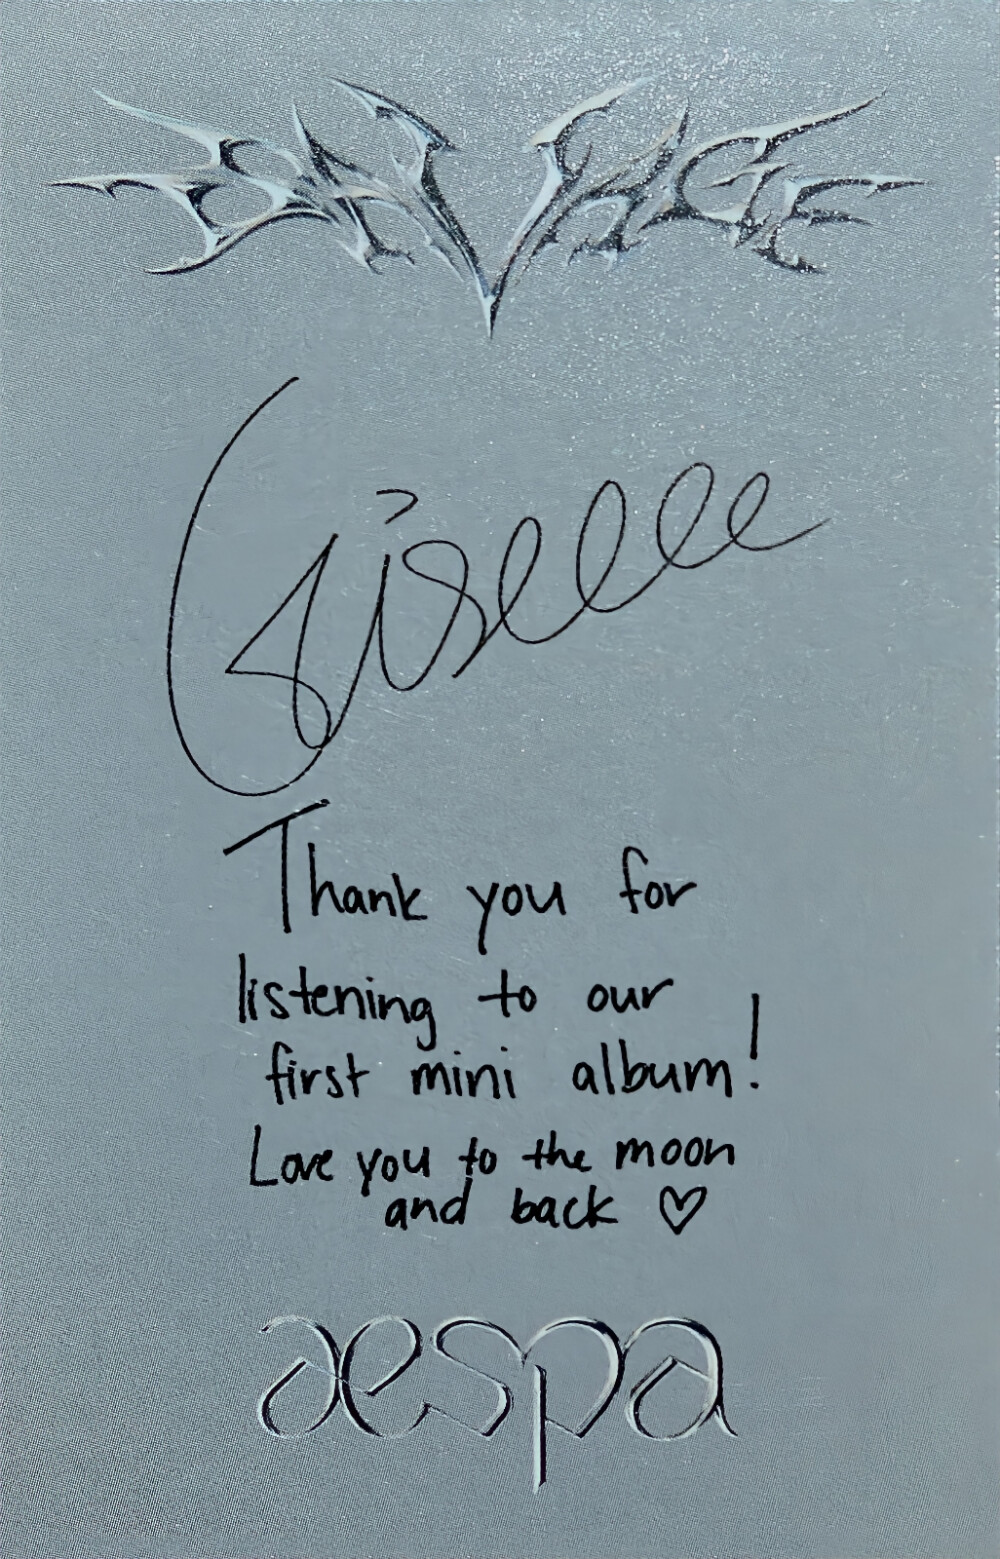 SAVAGE
Giselle
Thank you for
listening to our
first mini album!
Love you to the moon
and back ♡
aespa